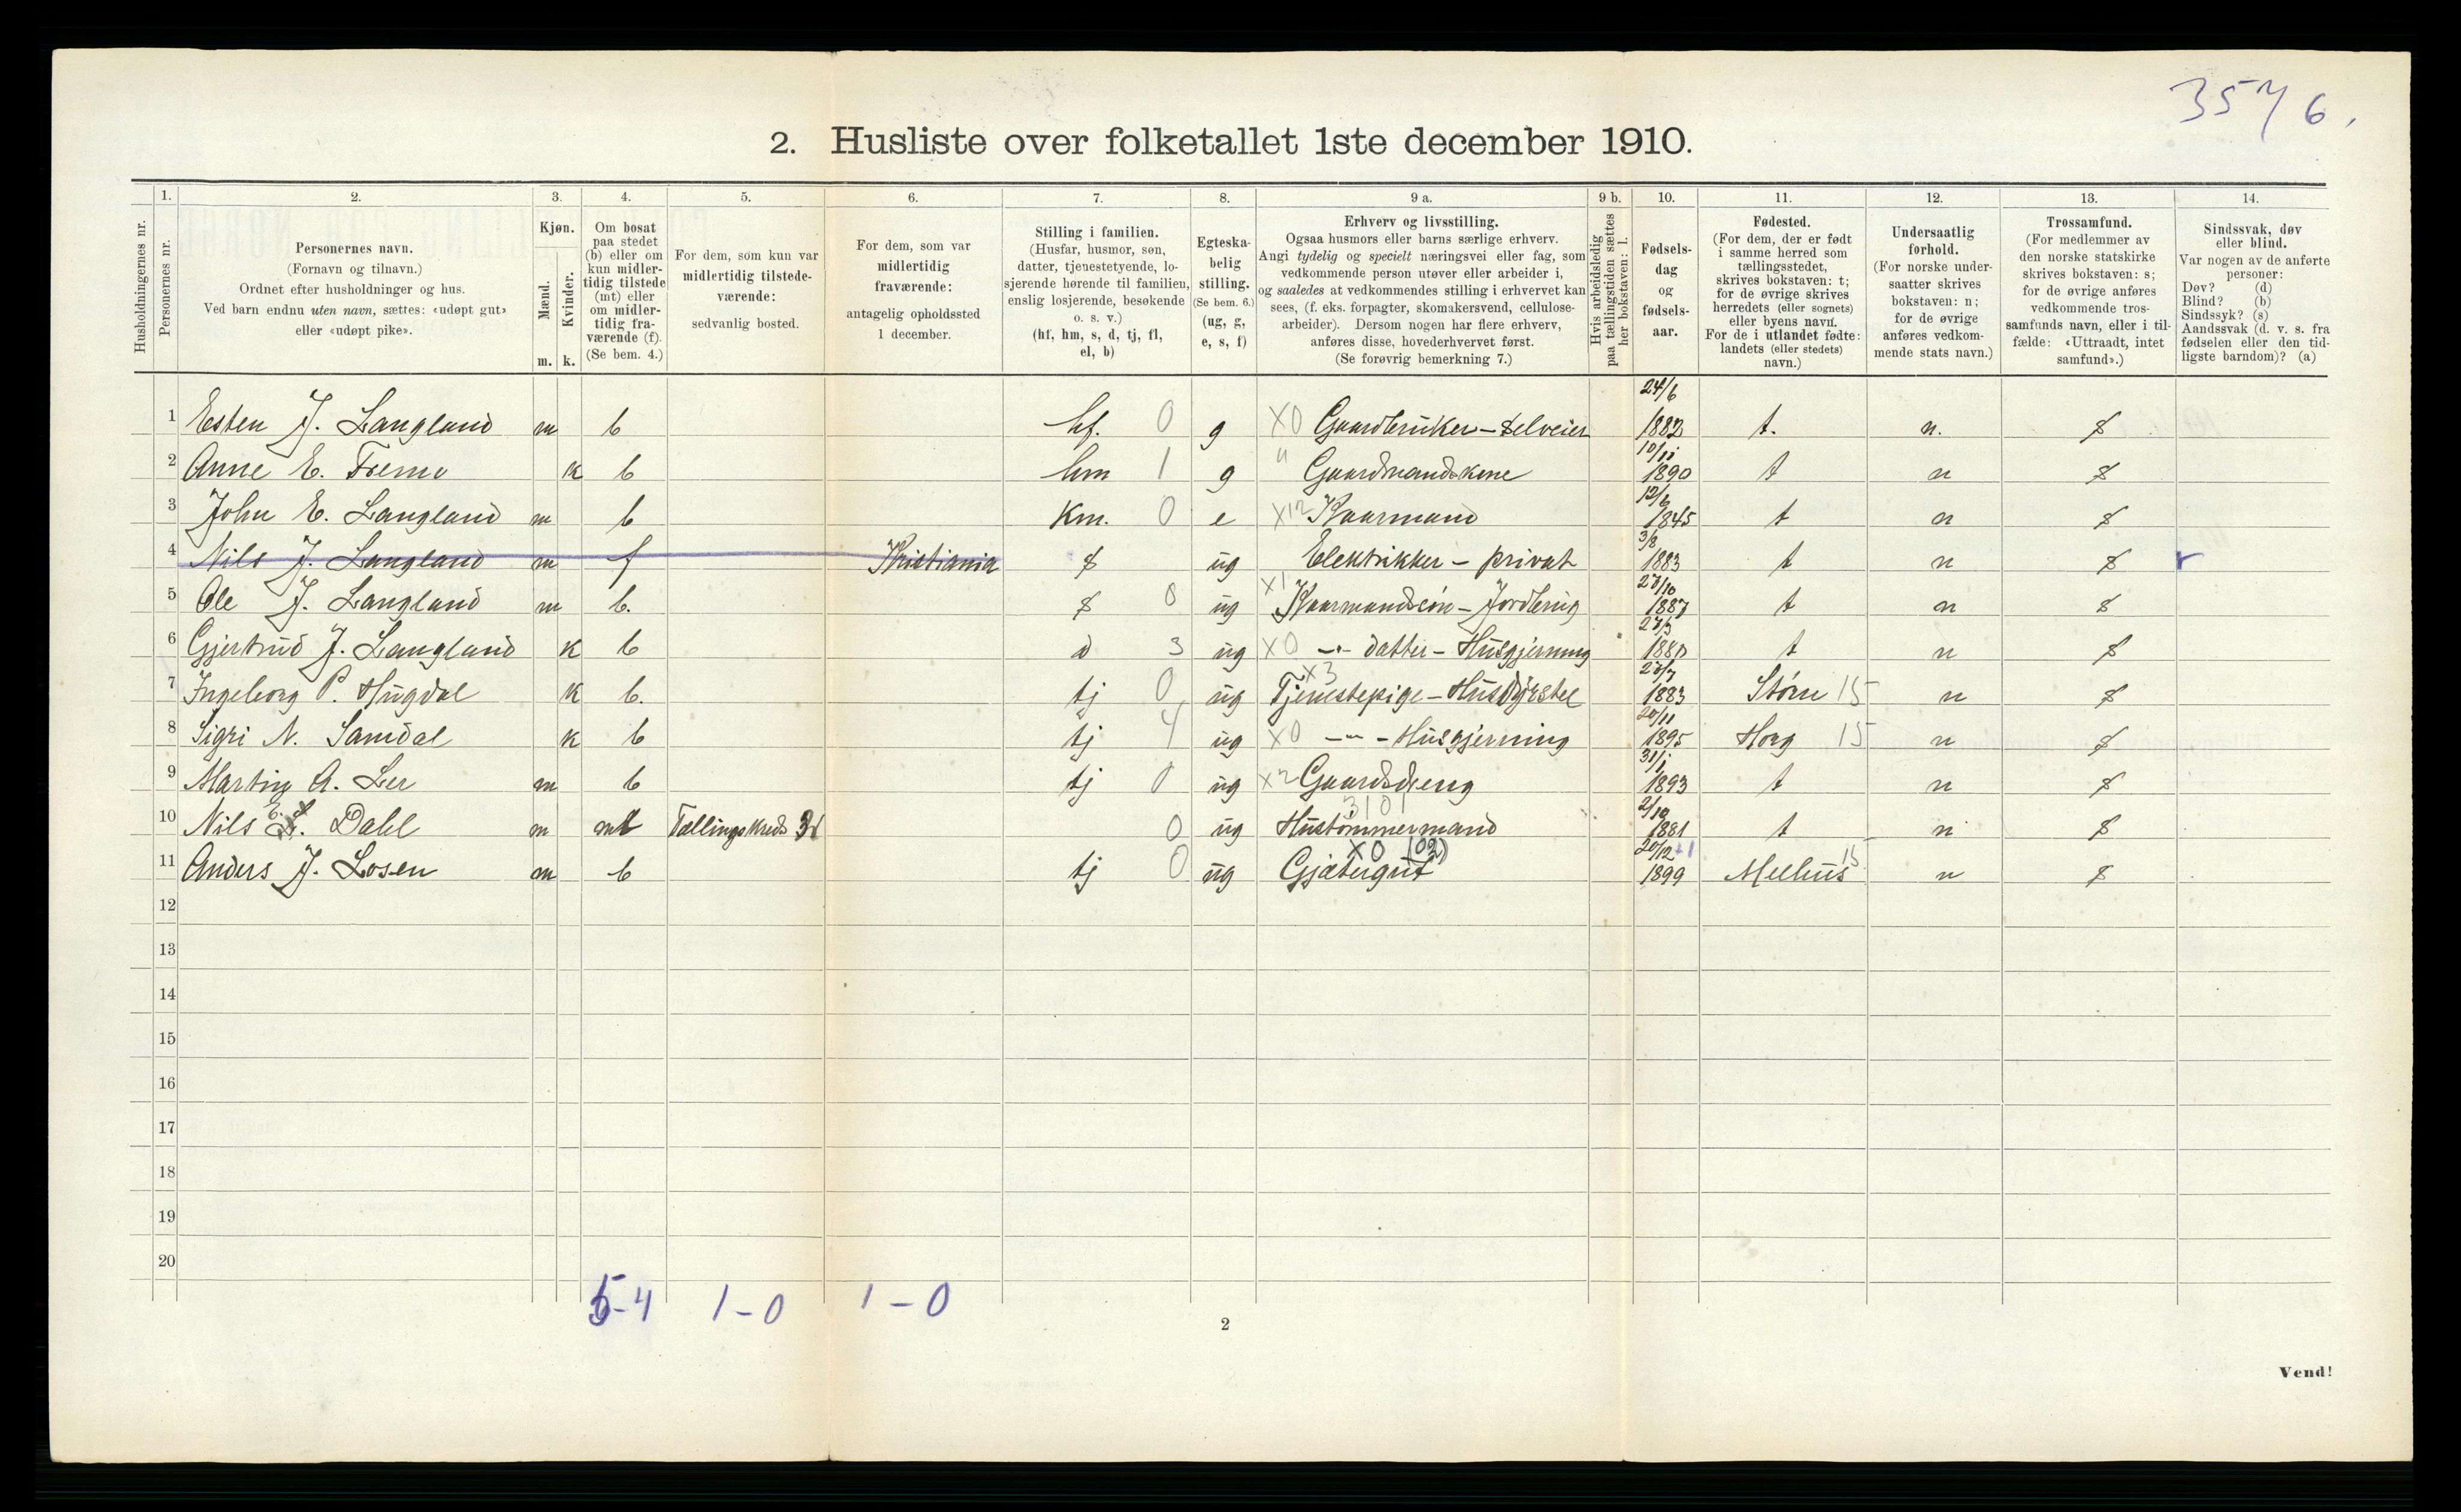 3576.
2. Husliste over folketallet 1ste december 1910.
Husholdningernes nr.
1. Personernes nr.
2. Personernes navn. (Fornavn og tilnavn.) Ordnet efter husholdninger og hus. Ved barn endnu uten navn, sættes: «udøpt gut» eller «udøpt pike».
3. Kjøn. Mænd. m. Kvinder. k.
4. Om bosat paa stedet (b) eller om kun midlertidig tilstede (mt) eller om midlertidig fraværende (f). (Se bem. 4.)
5. For dem, som kun var midlertidig tilstedeværende: sedvanlig bosted.
6. For dem, som var midlertidig fraværende: antagelig opholdssted 1 december.
7. Stilling i familien. (Husfar, husmor, søn, datter, tjenestetyende, losjerende hørende til familien, enslig losjerende, besøkende o. s. v.) (hf, hm, s, d, tj, fl, el, b)
8. Egteskabelig stilling. (Se bem. 6.) (ug, g, e, s, f)
9 a. Erhverv og livsstilling. Ogsaa husmors eller barns særlige erhverv. Angi tydelig og specielt næringsvei eller fag, som vedkommende person utøver eller arbeider i, og saaledes at vedkommendes stilling i erhvervet kan sees, (f. eks. forpagter, skomakersvend, cellulosearbeider). Dersom nogen har flere erhverv, anføres disse, hovederhvervet først. (Se forøvrig bemerkning 7.)
9 b. Hvis arbeidsledig paa tællingstiden sættes her bokstaven: l.
10. Fødselsdag og fødselsaar.
11. Fødested. (For dem, der er født i samme herred som tællingsstedet, skrives bokstaven: t; for de øvrige skrives herredets (eller sognets) eller byens navn. For de i utlandet fødte: landets (eller stedets) navn.)
12. Undersaatlig forhold. (For norske undersaatter skrives bokstaven: n; for de øvrige anføres vedkommende stats navn.)
13. Trossamfund. (For medlemmer av den norske statskirke skrives bokstaven: s; for de øvrige anføres vedkommende trossamfunds navn, eller i tilfælde: «Uttraadt, intet samfund».)
14. Sindssvak, døv eller blind. Var nogen av de anførte personer: Døv? (d) Blind? (b) Sindssyk? (s) Aandssvak (d. v. s. fra fødselen eller den tidligste barndom)? (a)
1 Esten J. Langland m b hf. 0 g X0 Gaardbruker - Selveier 24/6 1882 t. n. s
2 Anne E. Fremo k b hm 1 g " Gaardmandskone 10/11 1890 t n s
3 John E. Langland m b Km. 0 e X12 Kaarmand 12/6 1845 t n s
4 Nils J. Langland m f Kristiania s ug Elektrikker - privat 3/8 1883 t n s
5 Ole J. Langland m b. s 0 ug X1 Kaarmandssøn - Jordbrug 1887 t n s
6 Gjertrud J. Langland k b d 3 ug X0 -"- datter - Husgjerning t n s
7 Ingeborg P. Hugdal k b. tj 0 ug X3 Tjenestepige - Husdyrstel 1883 Støren 15 n s
8 Sigri N. Samdal k b tj 4 ug X0 -"- - Husgjerning 20/11 1895 Horg 15 n s
9 Martin A. Ler m b tj 0 ug X2 Gaardsdreng 31/1 1893 t n s
10 Nils E. Dahl m mt Tællingskreds 3 0 ug 3101 Hustømmermand 2/10 1881 t n s
11 Anders J. Losen m b tj 0 ug X0 (02) Gjætergut 20/12 +1 1899 Melhus 15 n s
12
13
14
15
16
17
18
19
20
5-4 1-0 1-0
2
Vend!